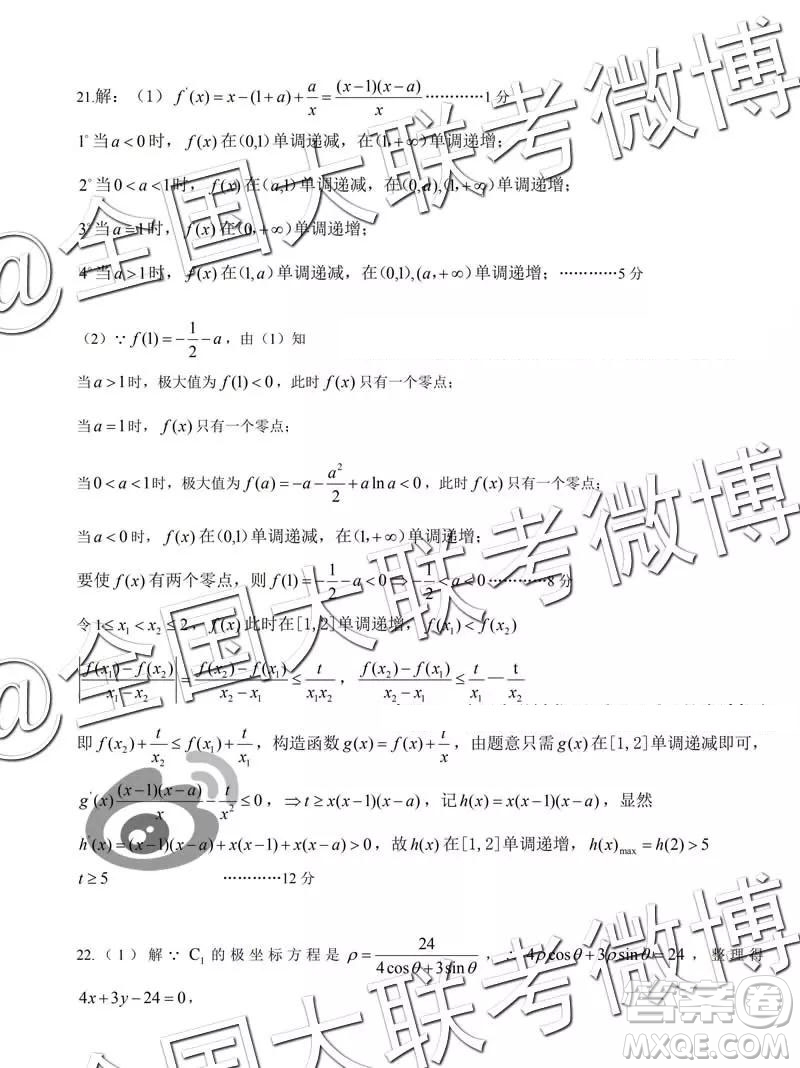 21.解：（1） f'(x)=x-(1+a)+a/x=(x-1)(x-a)/x…………1 分
1°当a<0时，f(x)在(0,1)单调递减，在(1,+∞)单调递增；
2°当0<a<1时，f(x)在(a,1)单调递减，在(0,a),(1,+∞)单调递增；
3°当a=1时，f(x)在(0,+∞)单调递增；
4°当a>1时，f(x)在(1,a)单调递减，在(0,1),(a,+∞)单调递增；…………5 分
（2）∵f(1)=-1/2-a，由（1）知
当a>1时，极大值为f(1)<0，此时f(x)只有一个零点；
当a=1时，f(x)只有一个零点；
当0<a<1时，极大值为f(a)=-a-a²/2+a ln a<0，此时f(x)只有一个零点；
当a<0时，f(x)在(0,1)单调递减，在(1,+∞)单调递增；
要使f(x)有两个零点，则f(1)=-1/2-a<0⇒-1/2<a<0…………8 分
令1≤x₁<x₂≤2，f(x)此时在[1,2]单调递增，f(x₁)<f(x₂)
|f(x₁)-f(x₂)/x₁-x₂|=f(x₂)-f(x₁)/x₂-x₁≤t/x₁x₂，f(x₂)-f(x₁)/x₂-x₁≤t/x₁—t/x₂
即f(x₂)+t/x₂≤f(x₁)+t/x₁，构造函数g(x)=f(x)+t/x，由题意只需g(x)在[1,2]单调递减即可，
g'(x)(x-1)(x-a)/x-t/x²≤0，⇒t≥x(x-1)(x-a)，记h(x)=x(x-1)(x-a)，显然
h'(x)=(x-1)(x-a)+x(x-1)+x(x-a)>0，故h(x)在[1,2]单调递增，h(x)max=h(2)>5
t≥5 …………12 分
22.（1）解∵C₁的极坐标方程是ρ=24/4cosθ+3sinθ，∴4ρcosθ+3ρsinθ=24，整理得
4x+3y-24=0，
@全国大联考微博
@全国大联考微博
答案卷
MXQE.COM